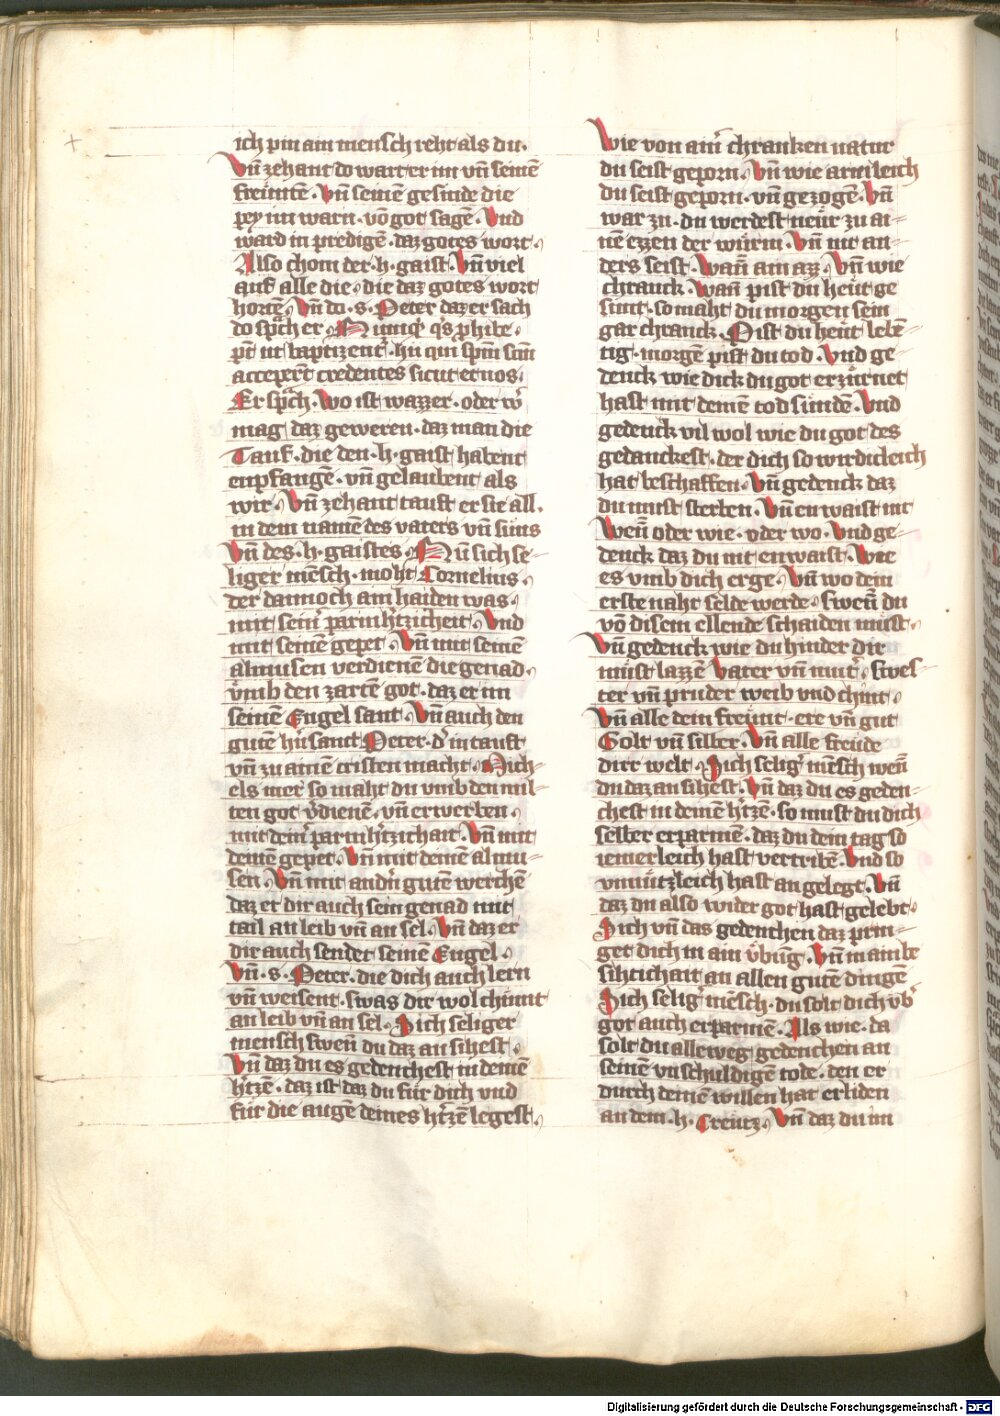 ich pin ain mensch reht als du.
Vn̄ zehant do wart er im vn̄ seinē
freuͤntē. Vn̄ seinem gesinde die
pey im warn. vō got sagē. Vnd
ward in predigē. daz gotes wort.
Also chom der .h. gaist. Vn̄ viel
auf alle die. die daz gotes wort
hortē. Vn̄ do .s. Peter daz er sach
do spͣch er. Numqͥd qͥs phibe-
pt̄ ut baptizentͬ. hii qui spm̄ scm̄
accepert̄ credentes sicut et nos.
Er spͣch. Wo ist wazzer. oder wͬ
mag daz geweren. daz man die
Tauf. die den .h. gaist habent
enpfangē. vn̄ gelaubent als
wir. Vn̄ zehant tauft er sie all.
in dem namē des vaters vn̄ suns
Vn̄ des .h. gaistes. Nu sich se-
liger mēsch. moht Cornelius.
der dannoch ain haiden was.
mit seinͬ parmh̄tzicheit. Vnd
mit seinē gepet. Vn̄ mit seinē
almusen verdienē die genad.
vmb den zartē got. daz er im
seinē Engel sant. Vn̄ auch den
gutē hn̄ sant Peter. dͬ in tauft
vn̄ zu ainē cristen macht. Mich-
els mer so maht du vmb den mil-
ten got vͬdienē. vn̄ erwerben.
mit deinͬ parmh̄tzichait. Vn̄ mit
deinē gepet. Vn̄ mit deinē almu-
sen. Vn̄ mit andn̄ gutē werchē
daz er dir auch sein genad mit
tail an leib vn̄ an sel. Vn̄ daz er
dir auch sender seinē Engel.
Vn̄ .s. Peter. die dich auch lern
vn̄ weisent. swas dir wol chuͤmt
an leib vn̄ an sel. Sich seliger
mensch swen̄ du daz an sihest.
Vn̄ daz du es gedenchest in deinē
h̄tzē. daz ist daz du fuͤr dich vnd
fuͤr die augē deines h̄tzē legest.
Wie von ainͬ chranken natur
du seist geporn. Vn̄ wie armleich
du seist geporn. vn̄ gezogē. Vn̄
war zu. du werdest neuͤr zu ai-
nē ezzen der wuͤrm. Vn̄ nit an-
ders seist. Wan̄ ain azz. Vn̄ wie
chranck. Wan̄ pist du heuͤt ge
sunt. so maht du morgen sein
gar chranck. Pist du heuͤt lebē-
tig. morgē pist du tod. Vnd ge-
denck wie dick du got erzuͤrnet
hast mit deinē tod suͤndē. Vnd
gedenck vil wol wie du got des
gedanckest. der dich so wirdicleich
hat beschaffen. Vn̄ gedenck daz
du must sterben. Vn̄ en waist nit
Wen̄ oder wie. oder wo. Vnd ge-
denck daz du nit en waist. Wie
es vmb dich erge. Vn̄ wo dein
erste naht selde werde. swen̄ du
vō disem ellende schaiden must.
Vn̄ gedenck wie du hinder dir
muͤst lazzē Vater vn̄ mutͬ. Swes-
ter vn̄ pruder weib vnd chint.
Vn̄ alle dein freuͤnt. ere vn̄ gut
Golt vn̄ silber. Vn̄ alle freude
dirr welt. Sich seligͬ mēsch wen̄
du daz an sihest. Vn̄ daz du es geden-
chest in deinē h̄tzē. so must du dich
selber erparmē. daz du dein tag so
iemerleich hast vertribē. Vnd so
vnnuͤtzleich hast angelegt. Vn̄
daz du also wider got hast gelebt.
Sich vn̄ das gedenchen daz prin-
get dich in ain vͤbūg. Vn̄ in ain be
sihtichait an allen gutē dingē
Sich seligͬ mēsch. du solt dich vbͬ
got auch erparmē. Als wie. da
solt du alleweg gedenchen an
seinē vnschuldigē tode. den er
durch deinē willen hat erliden
an dem .h. Creutz. Vn̄ daz du im
Digitalisierung gefördert durch die Deutsche Forschungsgemeinschaft - DFG